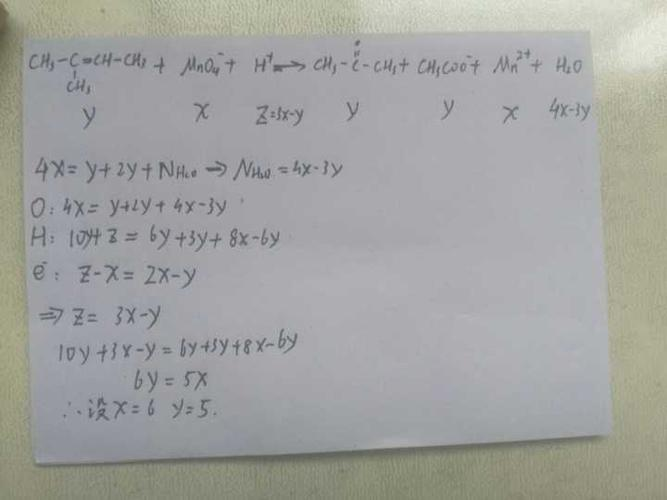 CH₃-C=CH-CH₃ + MnO₄⁻ + H⁺ → CH₃-C-CH₃ + CH₃COO⁻ + Mn²⁺ + H₂O
CH₃
y x Z=3x-y y y x 4x-3y
4x = y+2y+N_{H₂O} ⇒ N_{H₂O} = 4x-3y
O: 4x = y+2y+4x-3y
H: 10y+Z = 6y+3y+8x-6y
e⁻: Z-x = 2x-y
⇒ Z = 3x-y
10y+3x-y = 6y+3y+8x-6y
6y = 5x
∴设x=6 y=5.